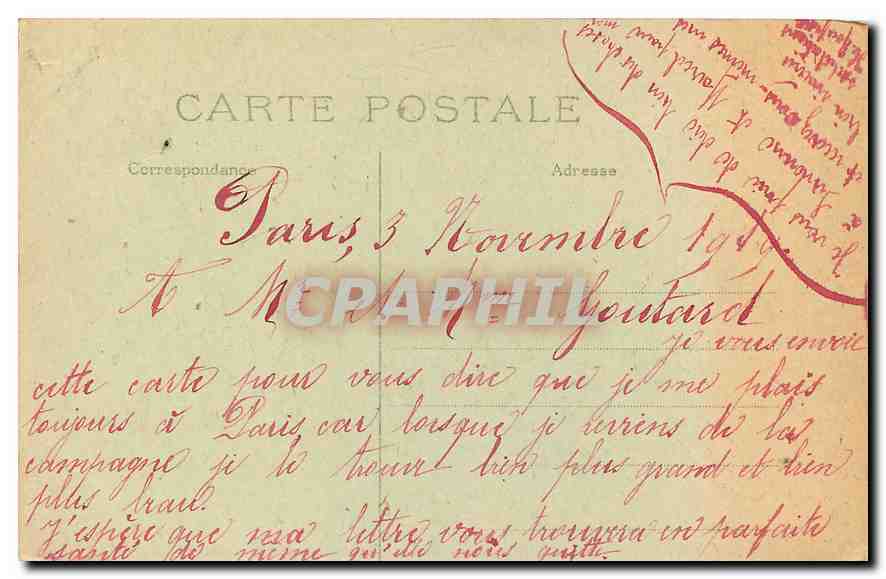 CARTE POSTALE
Correspondance
Adresse
Paris, 3 Novembre 1919
A Mr et Mme Goutard
je vous envoie
cette carte pour vous dire que je me plais
toujours à Paris car lorsque je reviens de la
campagne je le trouve bien plus grand et bien
plus beau.
J'espère que ma lettre vous trouvera en parfaite
santé de même qu'elle nous quitte.
Je vous prie de dire bien des choses
à Antoinine et Marcel pour moi
et recevez vous-mêmes mes
bien
CPAPHIL